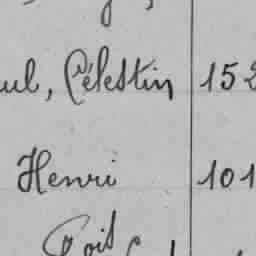 ul, Célestin 152
Henri 101